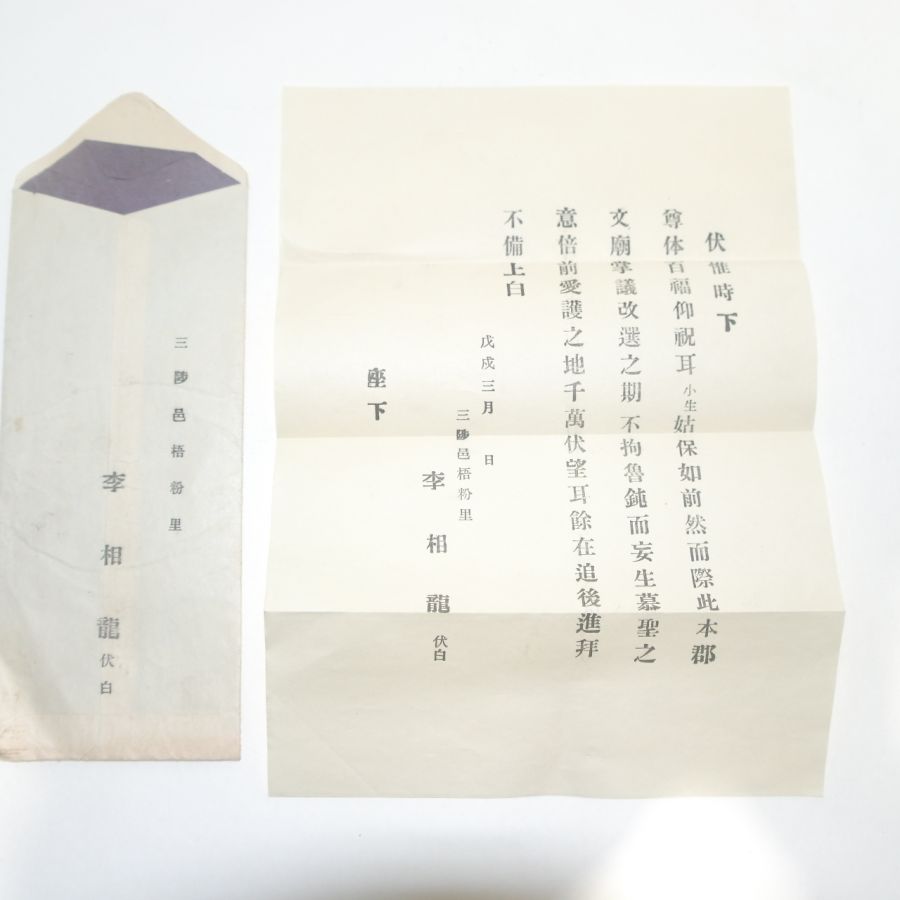 伏惟時下
尊体百福仰祝耳小生姑保如前然而際此本郡
文廟掌議改選之期不拘魯鈍而妄生慕聖之
意倍前愛護之地千萬伏望耳餘在追後進拜
不備上白
戊戌三月 日
三陟邑梧粉里
李相龍伏白
座下
三陟邑梧粉里
李相龍伏白